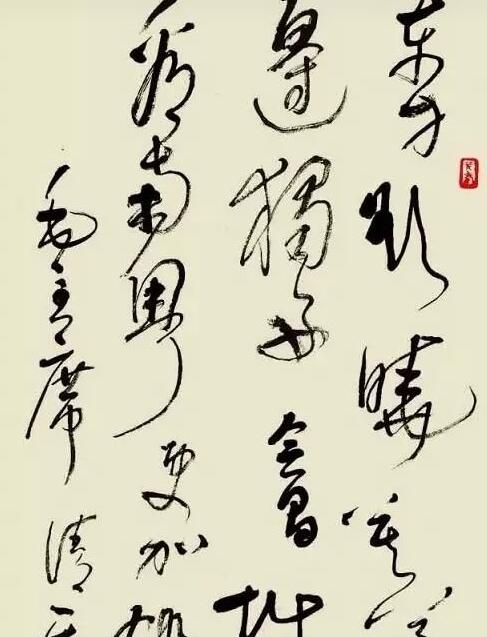 东方欲曉莫
邊獨好會昌
看南粤更加
毛主席清平